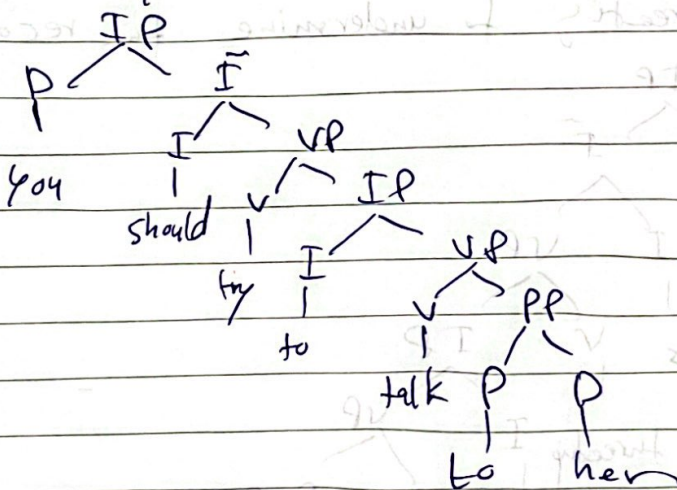 IP
P Ī
I VP
You
should V IP
try I VP
to V PP
talk P P
to her